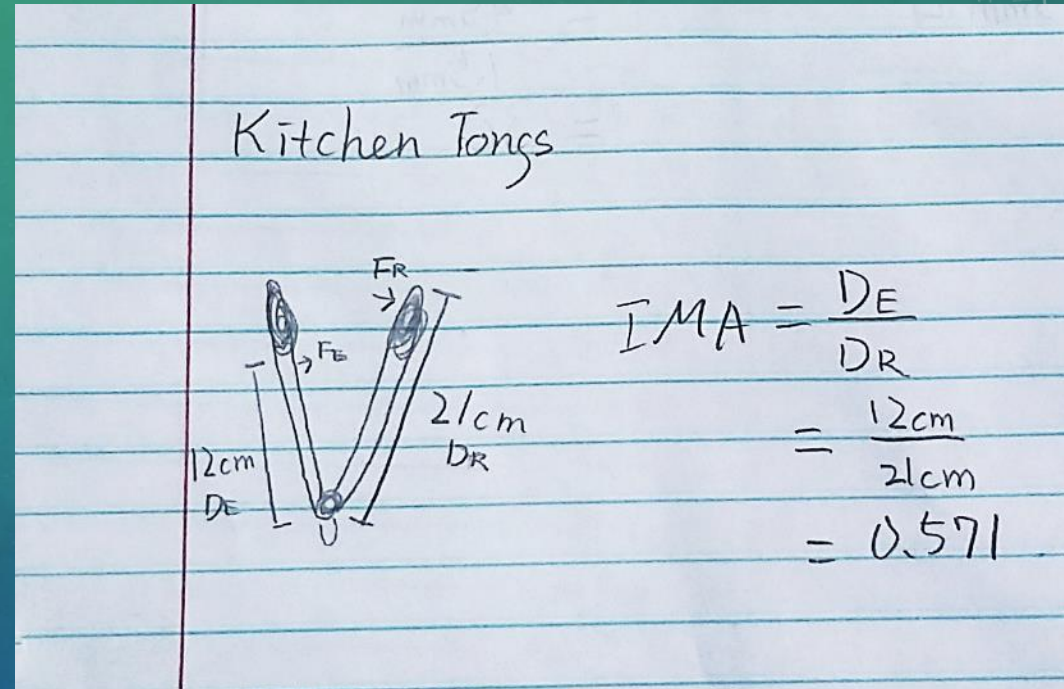 Kitchen Tongs
FR
FE
21cm
DR
12cm
DE
IMA = DE/DR
= 12cm/21cm
= 0.571